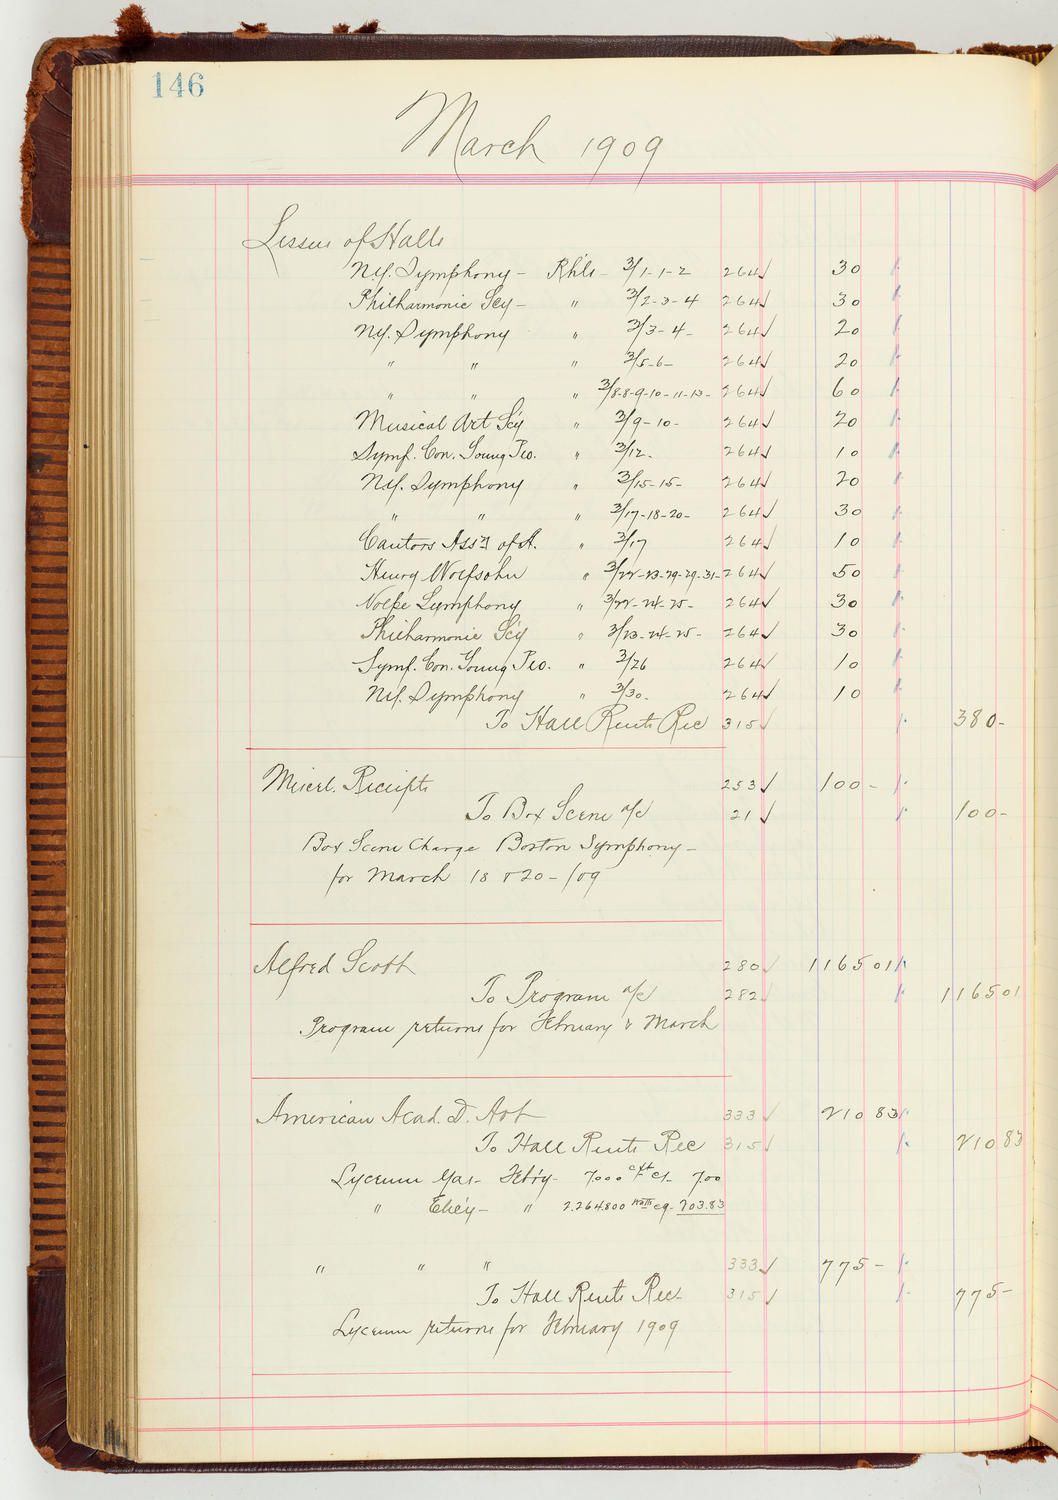 146
March 1909
Lessees of Halls
N.Y. Symphony - Rhls - 3/1-1-2 264 30
Philharmonic Scy - " 3/2-3-4 264 30
N.Y. Symphony " 3/3-4- 264 20
" " " 3/5-6- 264 20
" " " 3/8-8-9-10-11-13- 264 60
Musical Art Scy " 3/9-10- 264 20
Symf. Con. Young Peo. " 3/12- 264 10
N.Y. Symphony " 3/15-15- 264 20
" " " 3/17-18-20- 264 30
Cantors Ass'n of A. " 3/17 264 10
Henry Wolfsohn " 3/22-23-29-29-31- 264 50
Volpe Symphony " 3/22-24-25- 264 30
Philharmonic Scy " 3/23-24-25- 264 30
Symf. Con. Young Peo. " 3/26 264 10
N.Y. Symphony " 3/30- 264 10
To Hall Rents Rec 315 380-
Miscel. Receipts 253 100-
To Box Scene a/c 21 100-
Box Scene Charge Boston Symphony-
for March 18 & 20-/09
Alfred Scott 280 1165 01
To Program a/c 282 1165 01
Program returns for February & March
American Acad. D. Art 333 210 83
To Hall Rents Rec 315 210 83
Lyceum Gas- Feb'y- 7.000 cft @1- 7.00
" Elec'y- " 2.264.800 watts @9- 203.83
" " " 333 775-
To Hall Rents Rec- 315 775-
Lyceum returns for February 1909